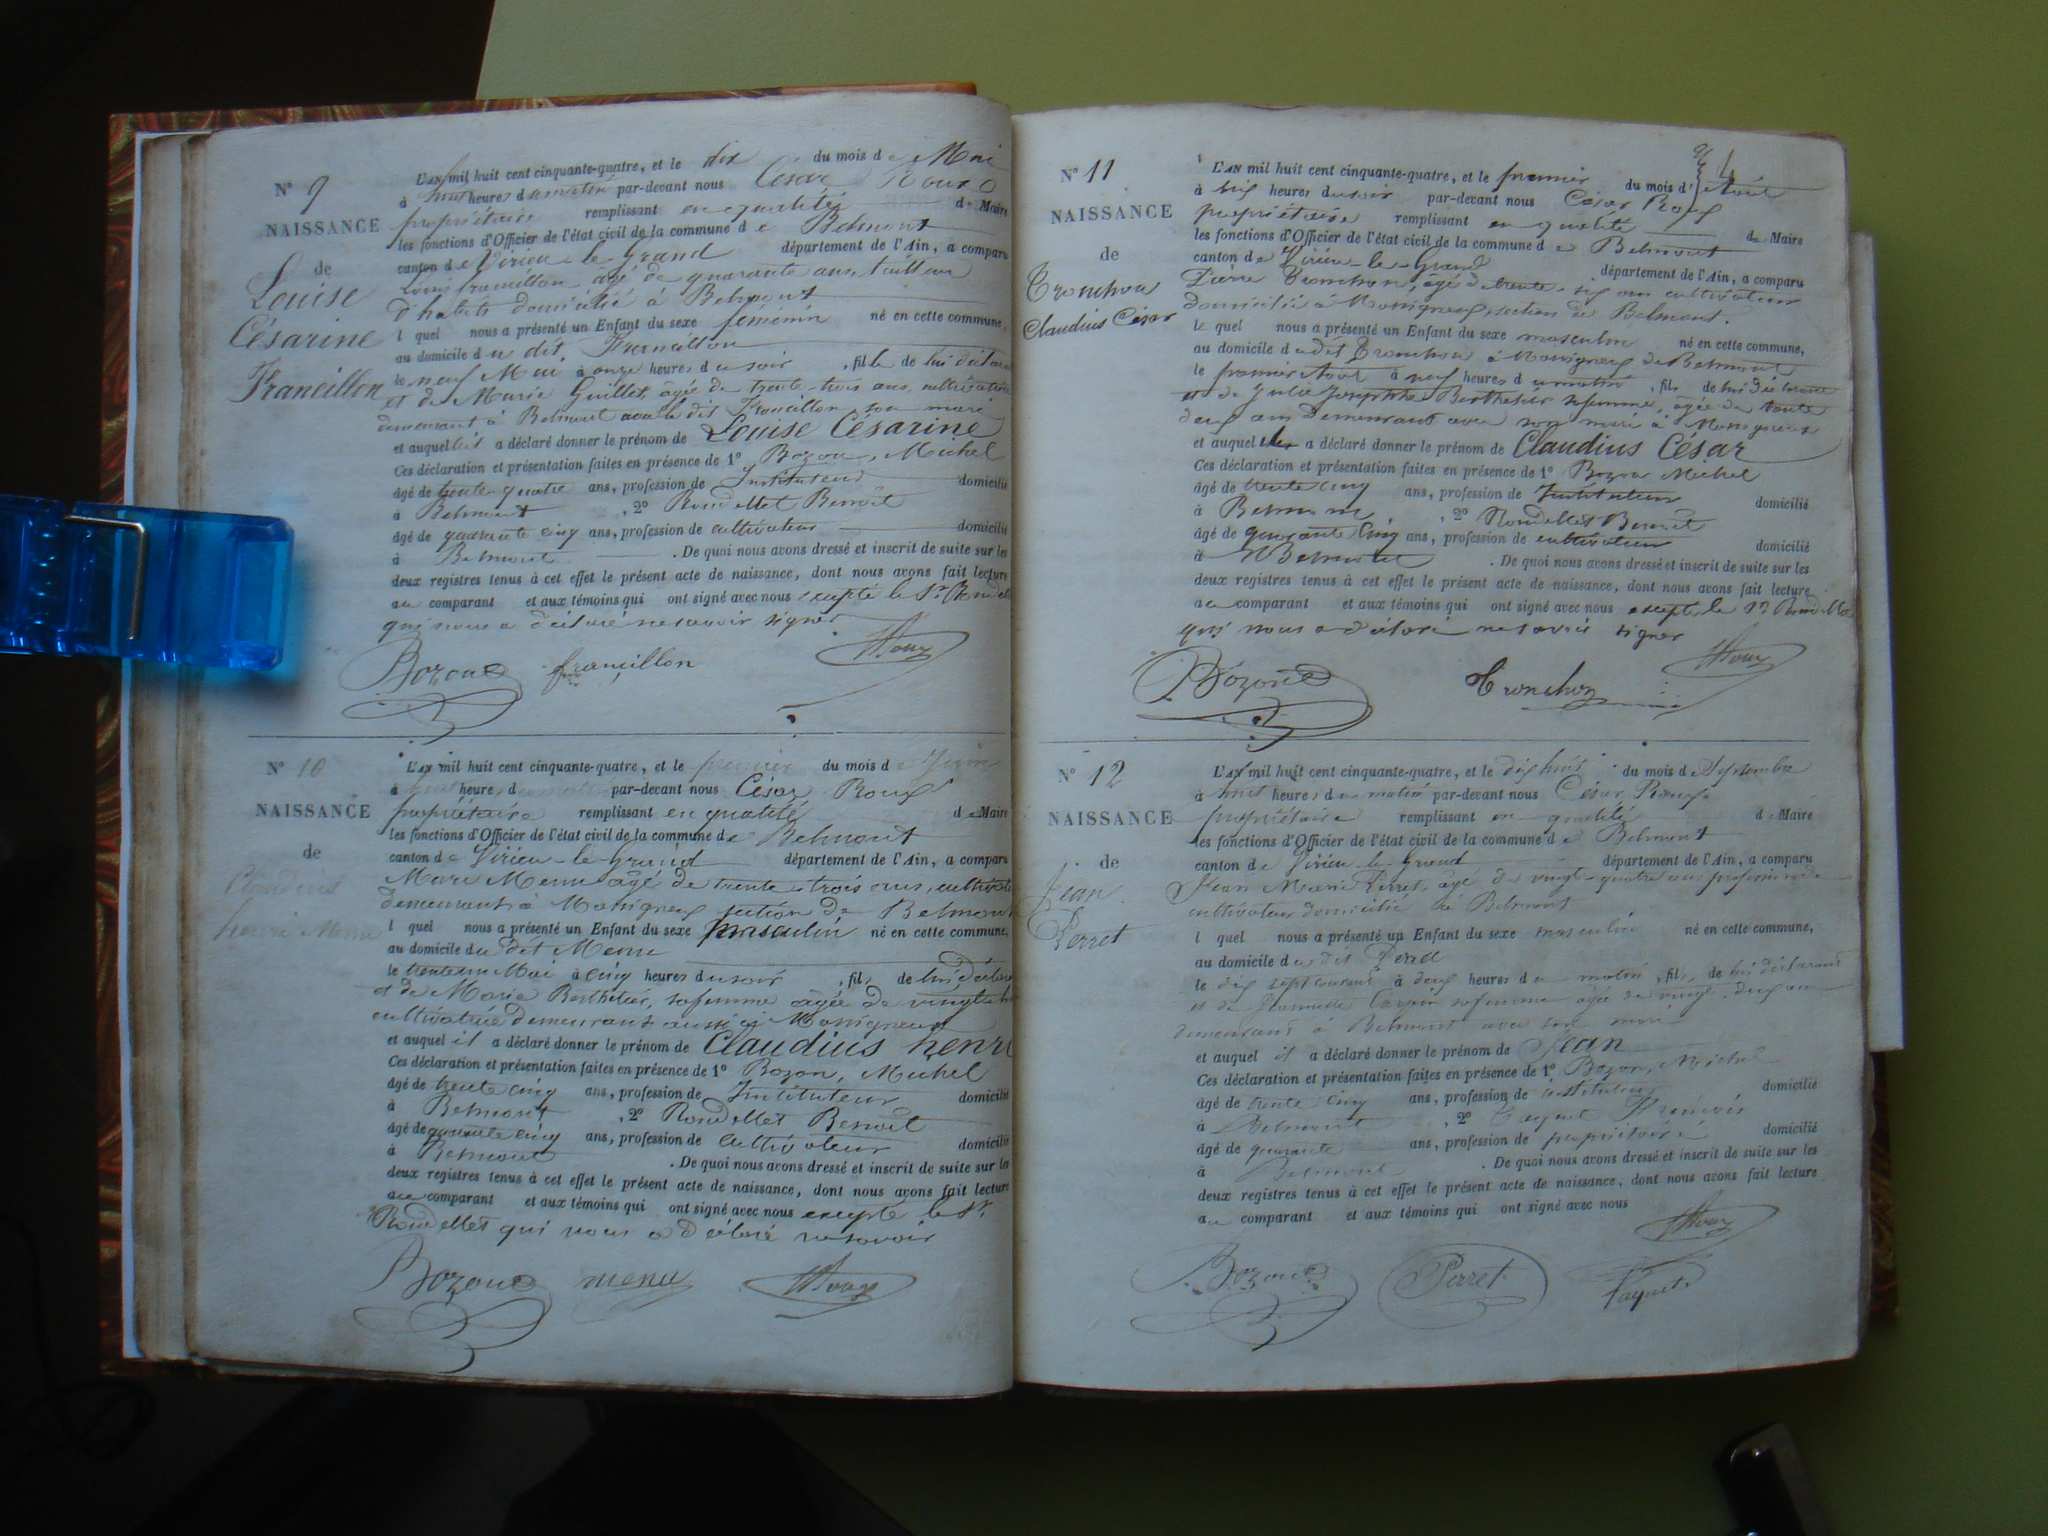 N° 9
NAISSANCE
de
Louise
Césarine
Francillon
L'AN mil huit cent cinquante-quatre, et le dix du mois de Mai
à huit heures du matin par-devant nous César Roux
propriétaire remplissant en qualité de Maire
les fonctions d'Officier de l'état civil de la commune de Belmont
canton de Virieu-le-Grand département de l'Ain, a comparu
Louis francillon âgé de quarante ans tailleur
d'habits domicilié à Belmont
lequel nous a présenté un Enfant du sexe féminin né en cette commune,
au domicile du dit Francillon
le neuf Mai à onze heures du soir, fille de lui déclarant
et de Marie Guillet, âgée de trente-trois ans, cultivatrice
demeurant à Belmont avec le dit Francillon son mari
et auquel il a déclaré donner le prénom de Louise Césarine
Ces déclaration et présentation faites en présence de 1° Bozon, Michel
âgé de trente-quatre ans, profession de Instituteur domicilié
à Belmont, 2° Rondellet Benoît
âgé de quarante cinq ans, profession de cultivateur domicilié
à Belmont. De quoi nous avons dressé et inscrit de suite sur les
deux registres tenus à cet effet le présent acte de naissance, dont nous avons fait lecture
au comparant et aux témoins qui ont signé avec nous excepté le Sr Rondel
qui nous a déclaré ne savoir signer
Bozon francillon Roux
N° 10
NAISSANCE
de
Claudius
henri Menu
L'AN mil huit cent cinquante-quatre, et le premier du mois de Juin
à huit heures du matin par-devant nous César Roux
propriétaire remplissant en qualité de Maire
les fonctions d'Officier de l'état civil de la commune de Belmont
canton de Virieu-le-Grand département de l'Ain, a comparu
Marc Menu âgé de trente-trois ans, cultivate
demeurant à Massigneux section de Belmont
lequel nous a présenté un Enfant du sexe masculin né en cette commune,
au domicile du dit Menu
le trente un Mai à cinq heures du soir, fils de lui déclara
et de Marie Berthelier, sa femme âgée de vingt
cultivatrice demeurant aussi à Massigneux
et auquel il a déclaré donner le prénom de Claudius henri
Ces déclaration et présentation faites en présence de 1° Bozon, Michel
âgé de trente cinq ans, profession de Instituteur domicilié
à Belmont, 2° Rondellet Benoît
âgé de quarante cinq ans, profession de Cultivateur domicilié
à Belmont. De quoi nous avons dressé et inscrit de suite sur les
deux registres tenus à cet effet le présent acte de naissance, dont nous avons fait lecture
au comparant et aux témoins qui ont signé avec nous excepté le Sr
Rondellet qui nous a déclaré ne savoir
Bozon menu Roux
N° 11
NAISSANCE
de
Tronchon
Claudius César
L'AN mil huit cent cinquante-quatre, et le premier du mois d'Août
à six heures du soir par-devant nous César Roux
propriétaire remplissant en qualité de Maire
les fonctions d'Officier de l'état civil de la commune de Belmont
canton de Virieu-le-Grand département de l'Ain, a comparu
Pierre Tronchon, âgé de trente-six ans cultivateur
domicilié à Massigneux section de Belmont.
lequel nous a présenté un Enfant du sexe masculin né en cette commune,
au domicile du dit Tronchon à Massigneux de Belmont
le premier Août à neuf heures du matin, fils de lui déclarant
et de Julie Josephte Berthelier sa femme, âgée de trente
deux ans demeurant avec son mari à Massigneux
et auquel il a déclaré donner le prénom de Claudius César
Ces déclaration et présentation faites en présence de 1° Bozon Michel
âgé de trente cinq ans, profession de Instituteur domicilié
à Belmont, 2° Rondellet Benoît
âgé de quarante cinq ans, profession de cultivateur domicilié
à Belmont. De quoi nous avons dressé et inscrit de suite sur les
deux registres tenus à cet effet le présent acte de naissance, dont nous avons fait lecture
au comparant et aux témoins qui ont signé avec nous excepté le Sr Rondellet
qui nous a déclaré ne savoir signer
Bozon Tronchon Roux
N° 12
NAISSANCE
de
Jean
Perret
L'AN mil huit cent cinquante-quatre, et le dix huit du mois de Septembre
à huit heures du matin par-devant nous César Roux
propriétaire remplissant en qualité de Maire
les fonctions d'Officier de l'état civil de la commune de Belmont
canton de Virieu-le-Grand département de l'Ain, a comparu
Jean Marie Perret, âgé de vingt-quatre ans profession de
cultivateur domicilié à Belmont
lequel nous a présenté un Enfant du sexe masculin né en cette commune,
au domicile du dit Perret
le dix sept courant à deux heures du matin, fils de lui déclarant
et de sa femme âgée de vingt-deux ans
demeurant à Belmont avec son mari
et auquel il a déclaré donner le prénom de Jean
Ces déclaration et présentation faites en présence de 1° Bozon, Michel
âgé de trente cinq ans, profession de instituteur domicilié
à Belmont, 2° François
âgé de quarante ans, profession de propriétaire domicilié
à Belmont. De quoi nous avons dressé et inscrit de suite sur les
deux registres tenus à cet effet le présent acte de naissance, dont nous avons fait lecture
au comparant et aux témoins qui ont signé avec nous
Roux
Bozon Perret